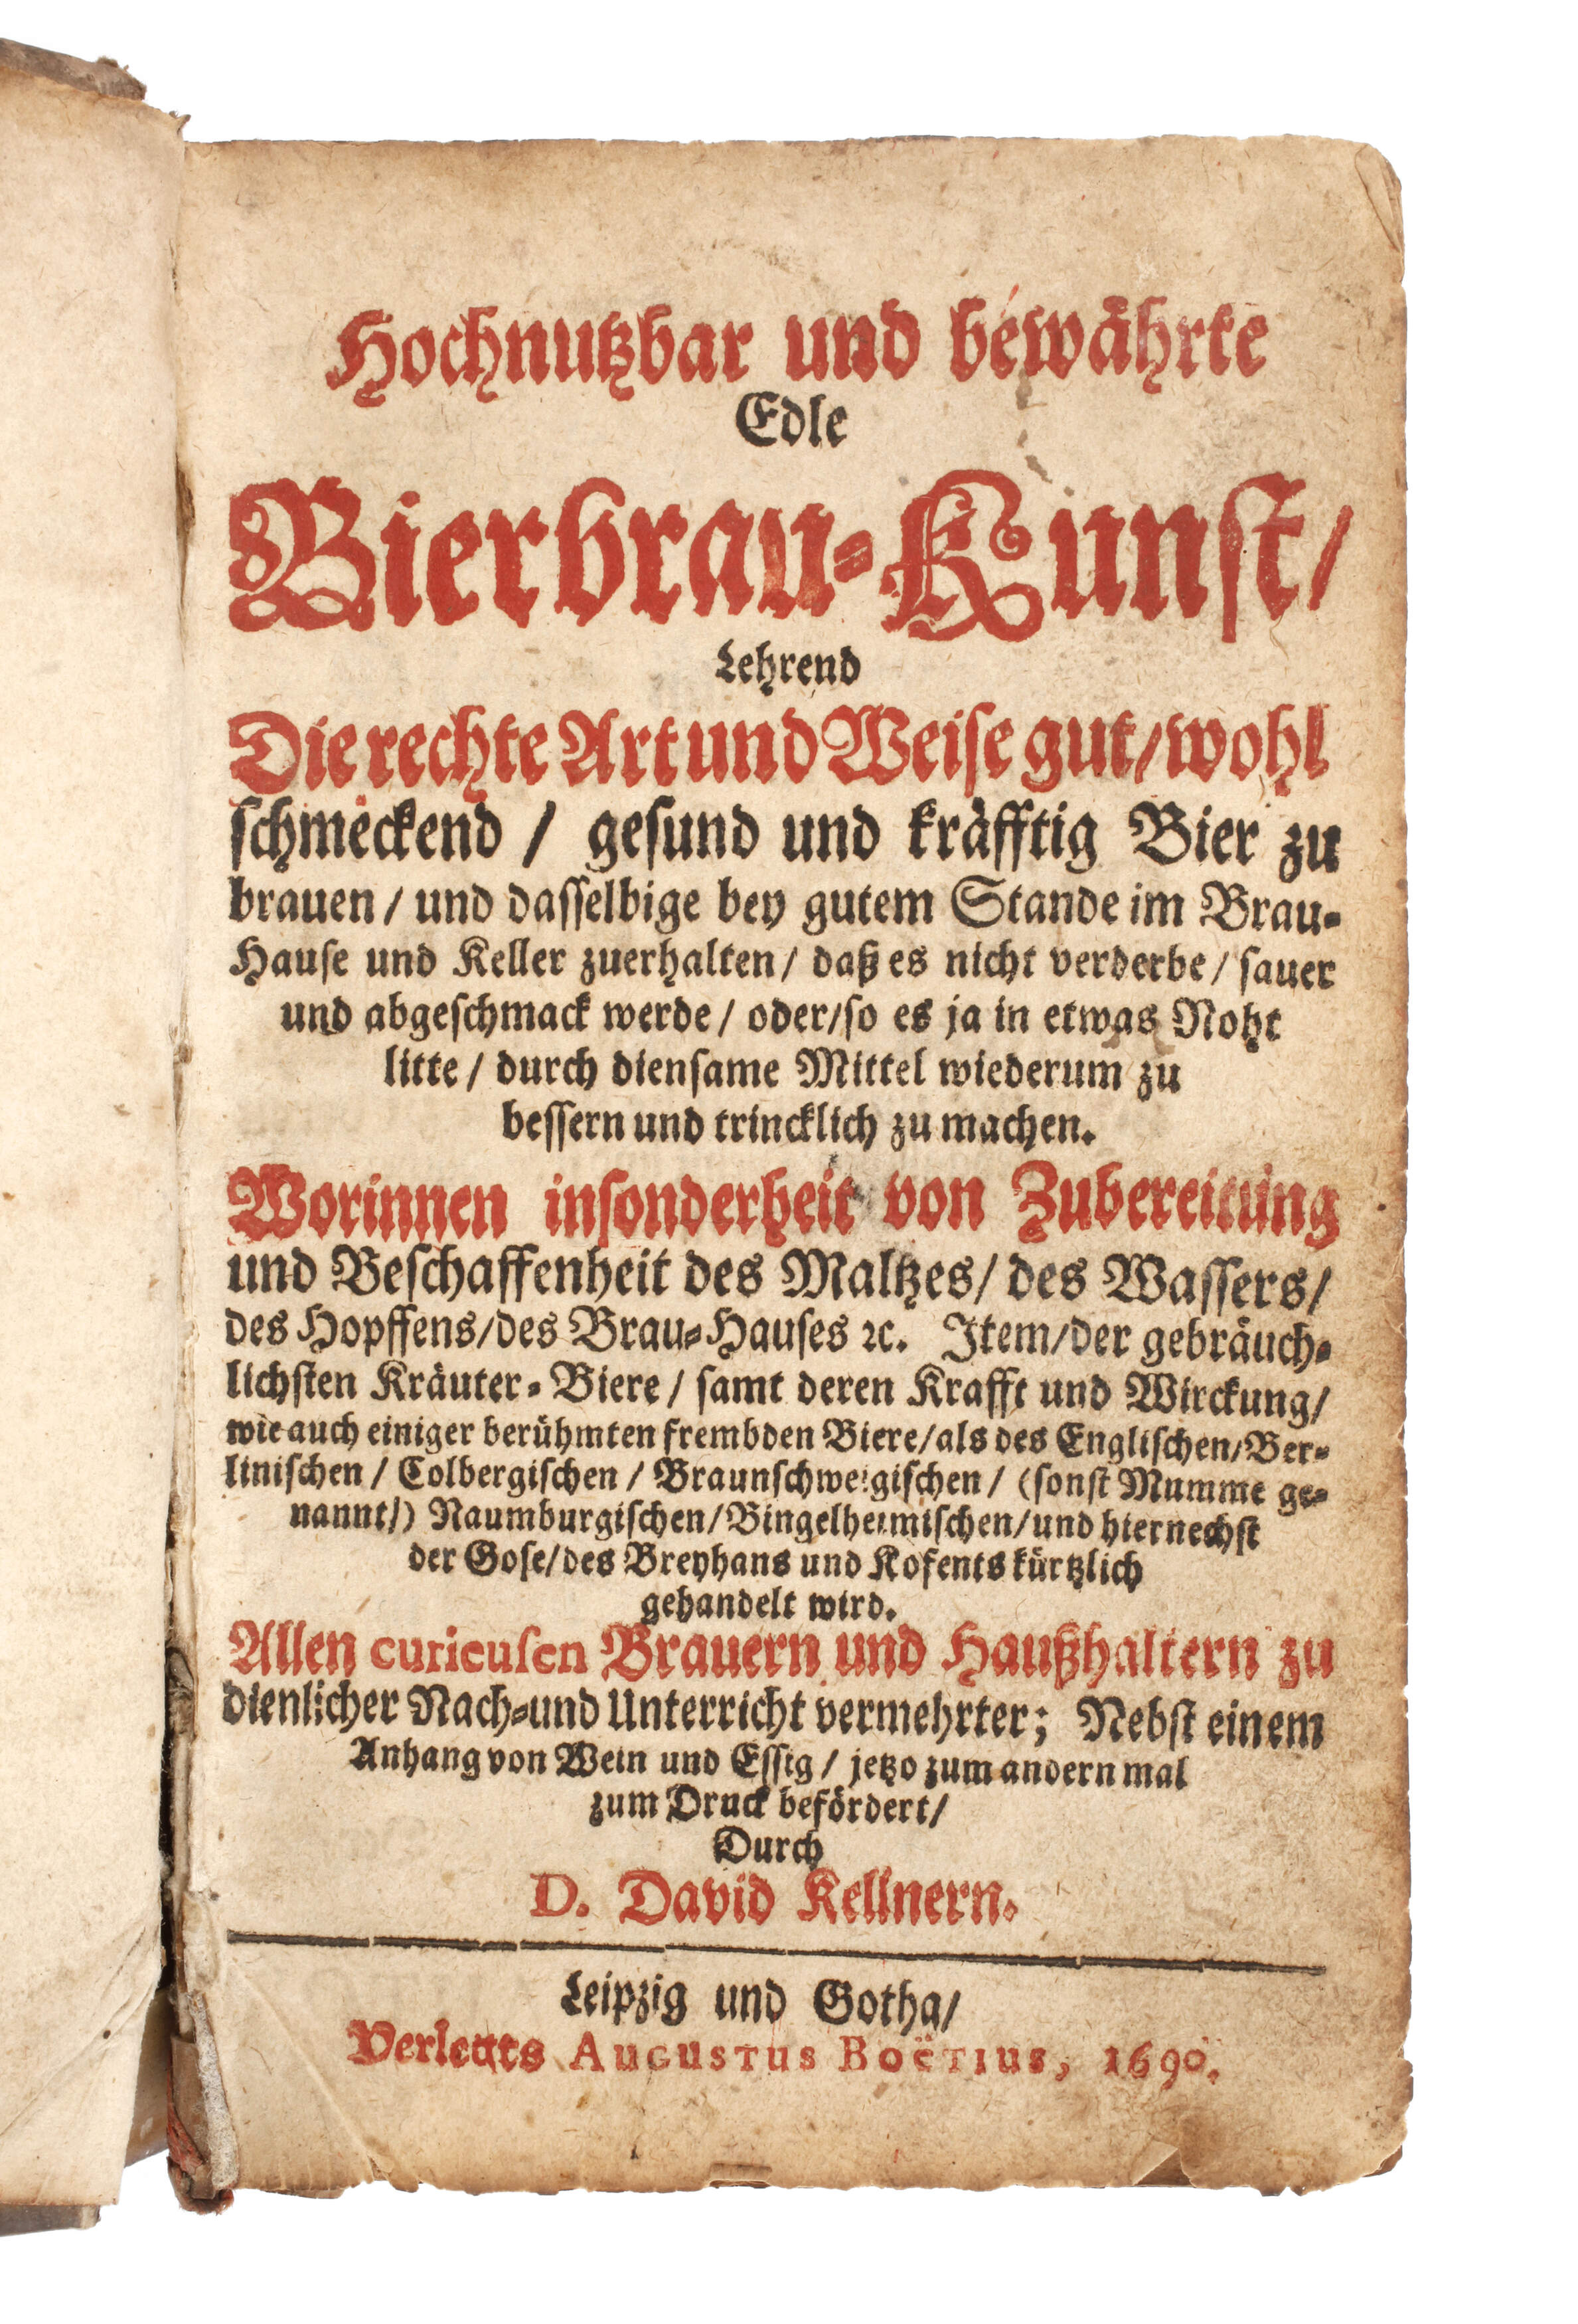 Hochnutzbar und bewährte
Edle
Bierbrau-Kunst/
Lehrend
Die rechte Art und Weise gut/wohl
schmeckend / gesund und kräfftig Bier zu
brauen / und dasselbige bey gutem Stande im Brau-
Hause und Keller zuerhalten / daß es nicht verderbe / sauer
und abgeschmack werde / oder/so es ja in etwas Noht
litte / durch diensame Mittel wiederum zu
bessern und trincklich zu machen.
Worinnen insonderheit von Zubereitung
und Beschaffenheit des Maltzes/ des Wassers/
des Hopffens/des Brau-Hauses ꝛc. Item/der gebräuch-
lichsten Kräuter-Biere / samt deren Krafft und Wirckung/
wie auch einiger berühmten frembden Biere/als des Englischen/Ber-
linischen / Colbergischen / Braunschweigischen / (sonst Mumme ge-
nannt/) Naumburgischen/Bingelheimischen/und hiernechst
der Gose/des Breyhans und Kofents kürtzlich
gehandelt wird.
Allen curieusen Brauern und Haußhaltern zu
dienlicher Nach-und Unterricht vermehrter; Nebst einem
Anhang von Wein und Essig / jetzo zum andern mal
zum Druck befördert/
Durch
D. David Kellnern.
Leipzig und Gotha/
Verlegts Augustus Boëtius, 1690.